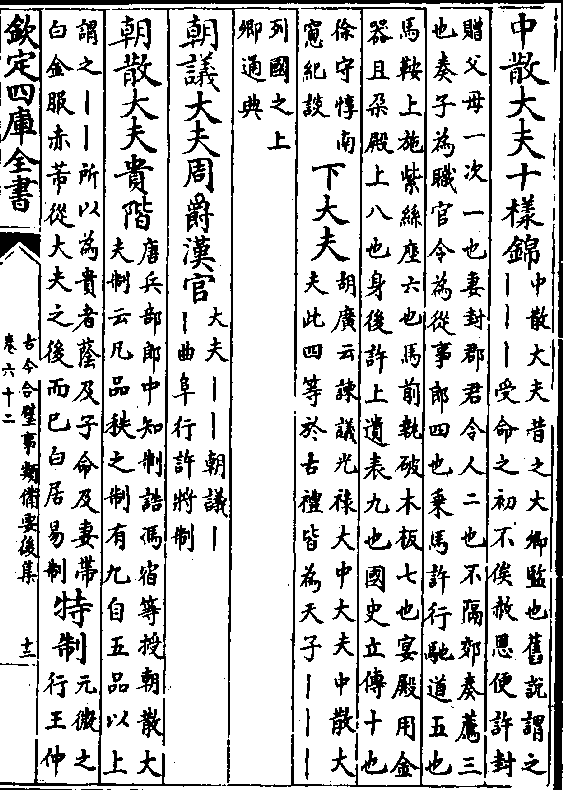 中散大夫十様錦
中散大夫昔之大卿監也舊說謂之
｜｜｜受命之初不俟赦恩便許封
贈父母一次一也妻封郡君令人二也不隔郊奏薦三
也奏子為職官令為從事郎四也乗馬許行馳道五也
馬鞍上施紫絲座六也馬前執破木板七也宴殿用金
器且朶殿上八也身後許上遺表九也國史立傳十也
徐守惇南
窻紀談
下大夫
胡廣云諫議光祿大中大夫中散大
夫此四等於古禮皆為天子｜｜｜
列國之上
卿通典
朝議大夫周爵漢官
大夫｜｜朝議｜
｜曲阜行許將制
朝散大夫貴階
唐兵部郎中知制誥馮宿等授朝散大
夫制云凡品秩之制有九自五品以上
謂之｜｜所以為貴者蔭及子命及妻帶
白金服赤芾從大夫之後而已白居易制
特制
元微之
行王仲
欽定四庫全書
古今合璧事類備要後集
卷六十二
十二